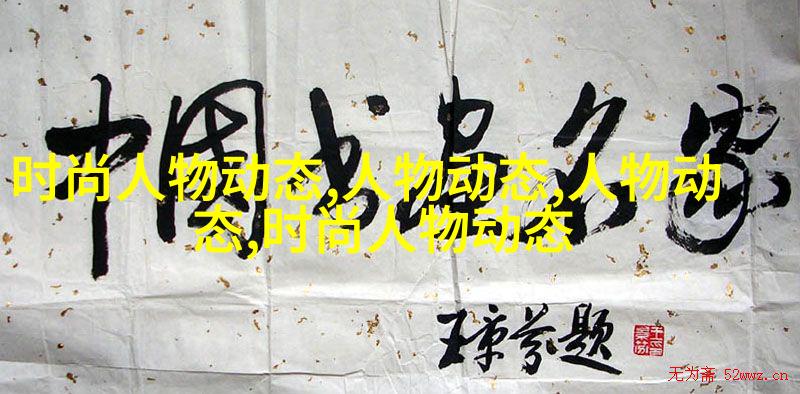 中国书画名家
时尚人物动态,人物动态,人物动
态,时尚人物动态
王京芬题
无为斋 52wwz.cn